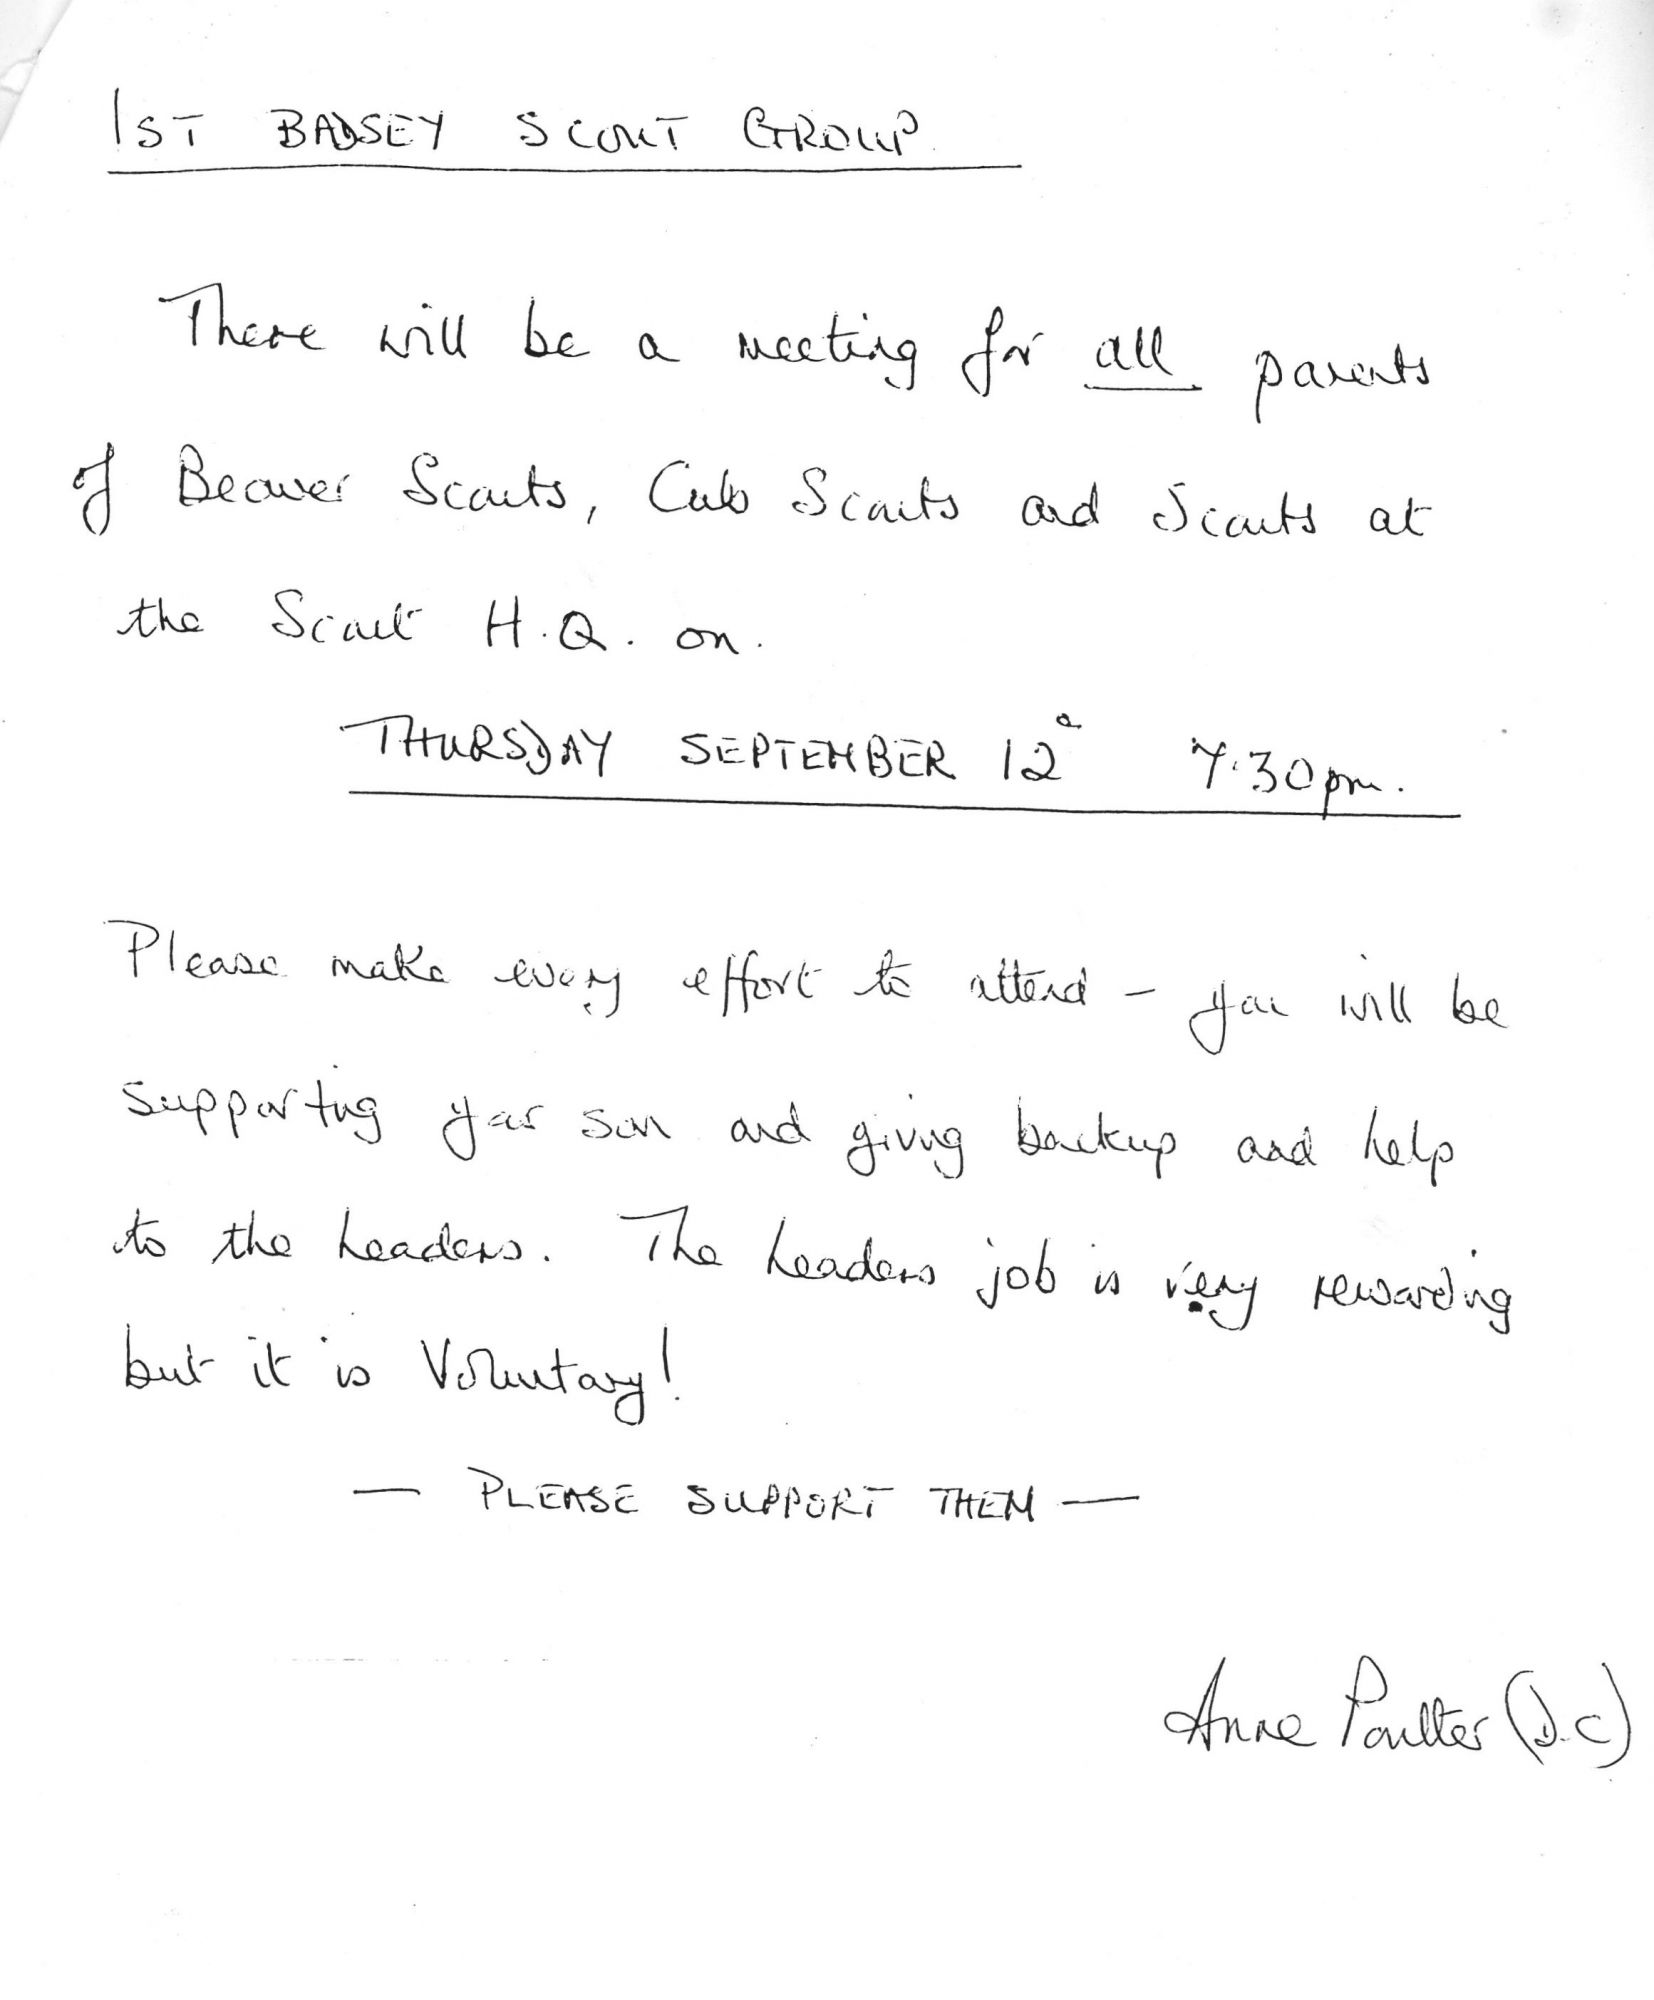 1ST BADSEY SCOUT GROUP.
There will be a meeting for all parents
of Beaver Scouts, Cub Scouts and Scouts at
the Scout H.Q. on.
THURSDAY SEPTEMBER 12 7.30pm.
Please make every effort to attend - you will be
supporting your son and giving backup and help
to the Leaders. The Leaders job is very rewarding
but it is Voluntary!
— PLEASE SUPPORT THEM —
Anne Poulter (D.C)